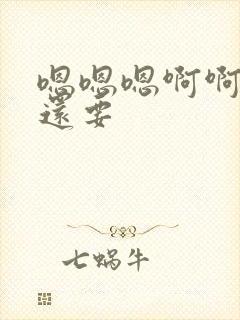 嗯嗯嗯啊啊
還要
七蝸牛